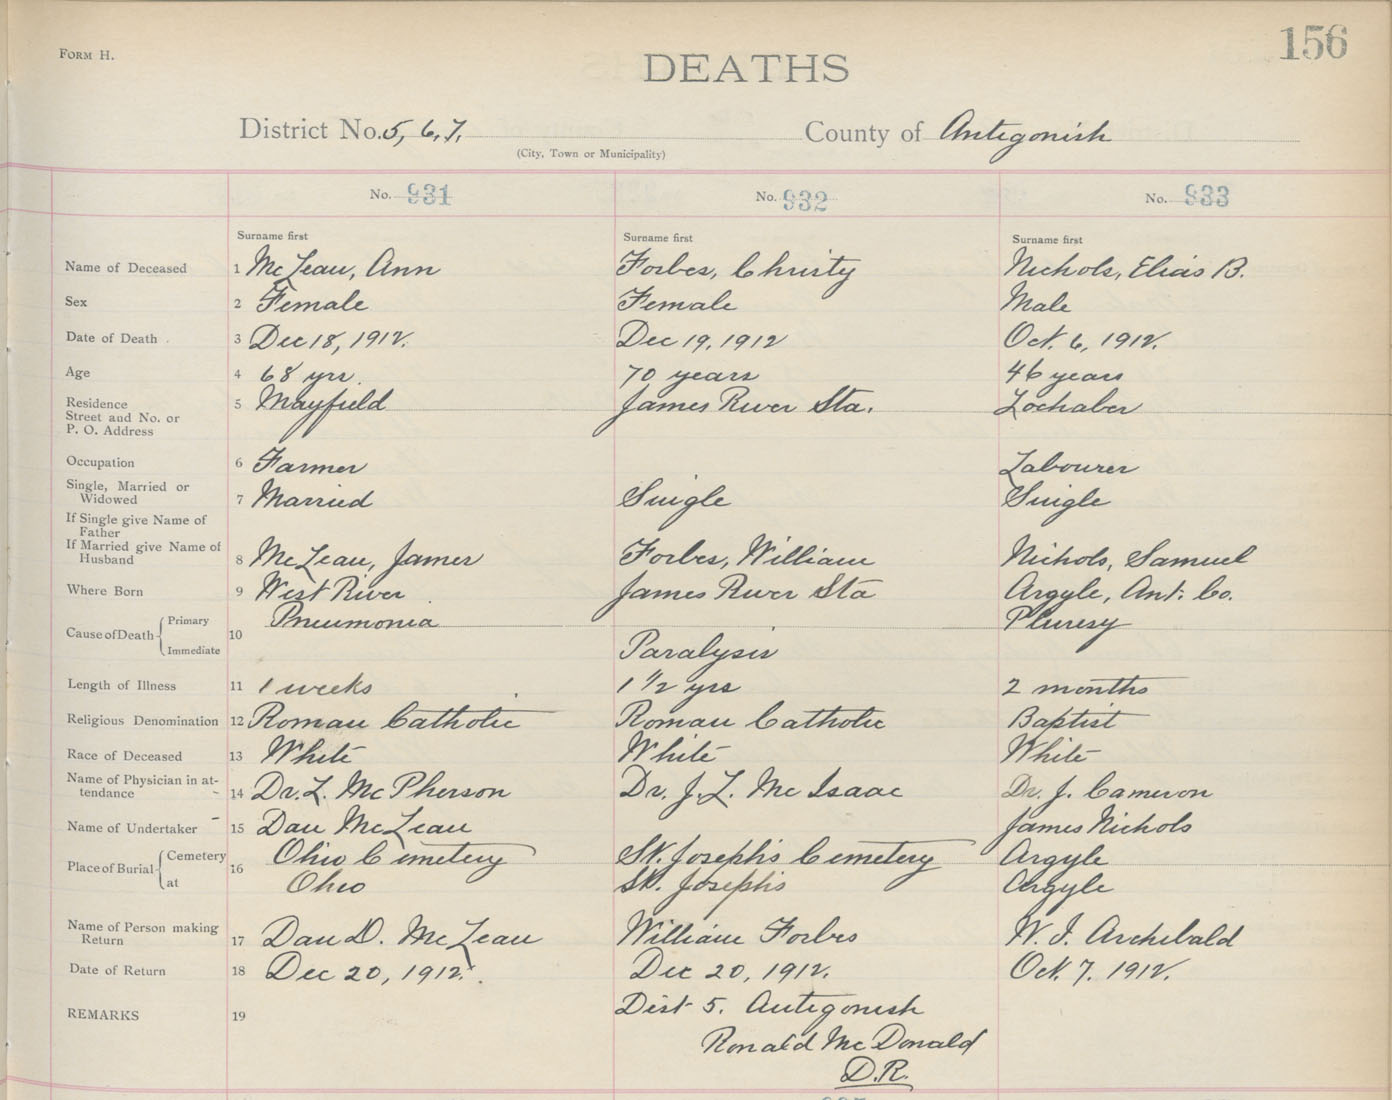 FORM H.
156
DEATHS
District No. 5, 6, 7, County of Antigonish
(City, Town or Municipality)
No. 931 No. 932 No. 933
Surname first Surname first Surname first
Name of Deceased 1 McLean, Ann Forbes, Christy Nichols, Elias B.
Sex 2 Female Female Male
Date of Death 3 Dec 18, 1912. Dec 19, 1912 Oct. 6, 1912.
Age 4 68 yrs. 70 years 46 years
Residence
Street and No. or
P. O. Address 5 Mayfield James River Sta. Lochaber
Occupation 6 Farmer Labourer
Single, Married or
Widowed 7 Married Single Single
If Single give Name of
Father
If Married give Name of
Husband 8 McLean, James Forbes, William Nichols, Samuel
Where Born 9 West River James River Sta Argyle, Ant. Co.
Cause of Death 10 Primary Pneumonia Pluresy
Immediate Paralysis
Length of Illness 11 1 weeks 1 1/2 yrs 2 months
Religious Denomination 12 Roman Catholic Roman Catholic Baptist
Race of Deceased 13 White White White
Name of Physician in at-
tendance 14 Dr. L. McPherson Dr. J. L. McIsaac Dr. J. Cameron
Name of Undertaker 15 Dan McLean James Nichols
Place of Burial 16 Cemetery Ohio Cemetery St. Josephs Cemetery Argyle
at Ohio St. Josephs Argyle
Name of Person making
Return 17 Dan D. McLean William Forbes W. I. Archibald
Date of Return 18 Dec 20, 1912. Dec 20, 1912. Oct. 7. 1912.
REMARKS 19 Dist 5. Antigonish
Ronald McDonald
D.R.